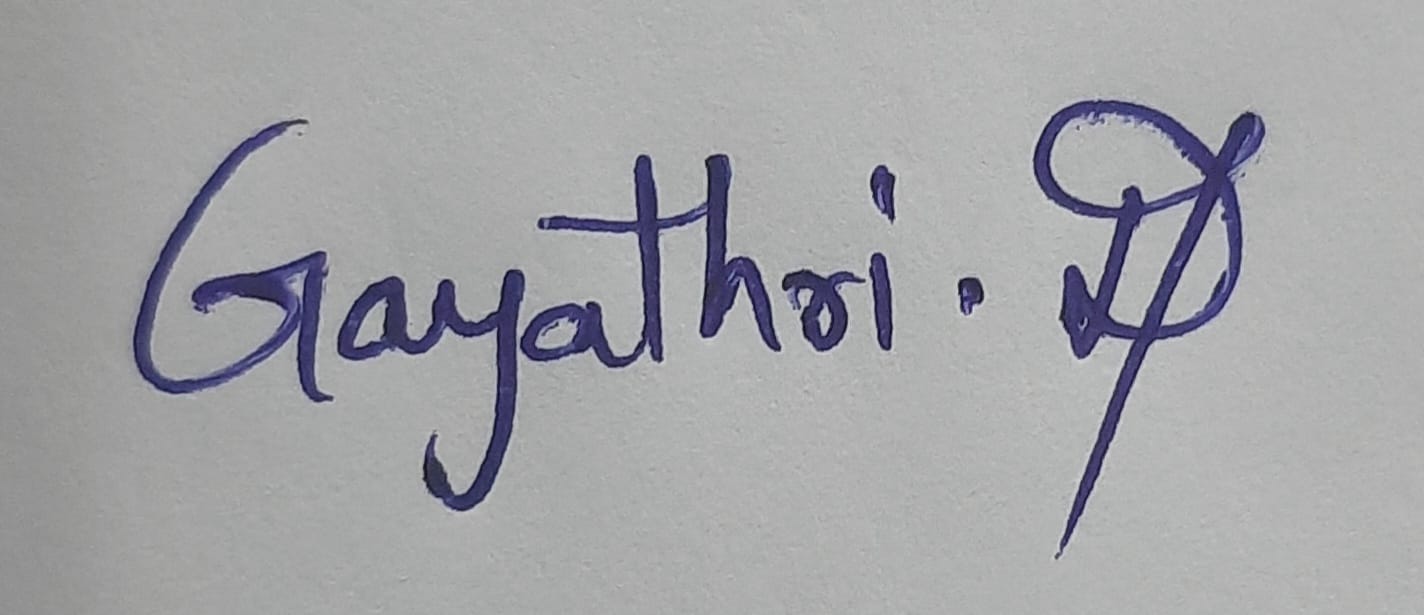 Gayathri. D